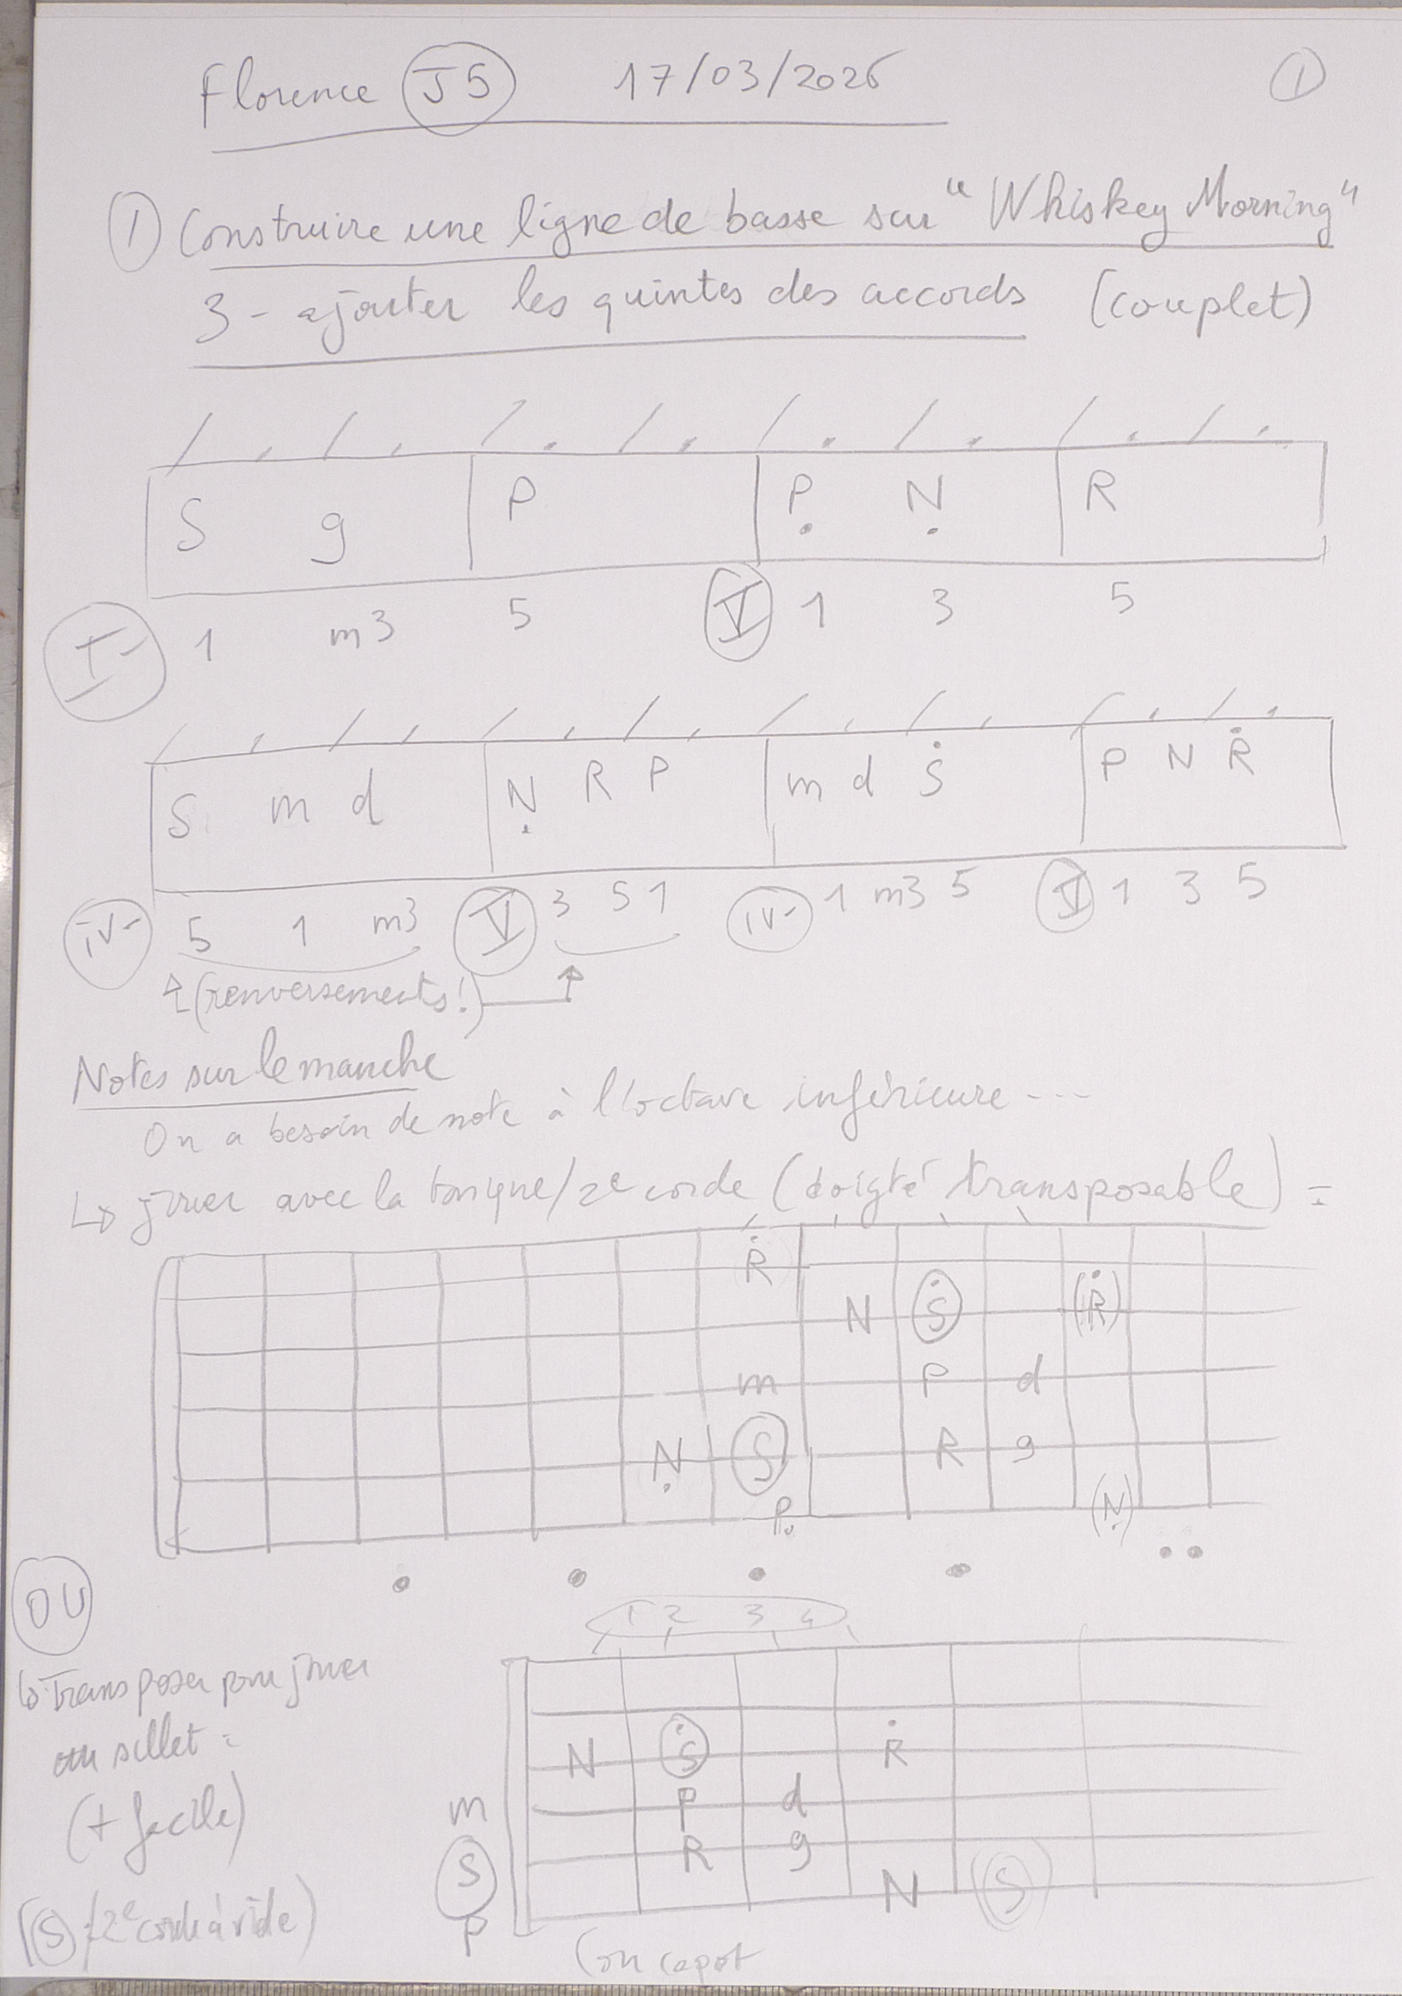 Florence J5 17/03/2026 1
1 Construire une ligne de basse sur "Whiskey Morning"
3 - ajouter les quintes des accords (couplet)
/ . / . / . / . / . / . / . / .
S g P P N R
I- 1 m3 5 V 1 3 5
/ . / . / . / . / . / . / . / .
S m d N R P m d S P N R
iv- 5 1 m3 V 3 5 1 iv- 1 m3 5 V 1 3 5
(renversements!)
Notes sur le manche
On a besoin de note à l'octave inférieure ...
↳ jouer avec la tonique/2e corde (doigté transposable) =
R
N S (R)
m P d
N S R g
P (N)
OU
1 2 3 4
↳ Transposer pour jouer
au sillet :
(+ facile)
(S / 2e corde à vide)
N S R
m P d
S R g
P N (S)
(ou capot